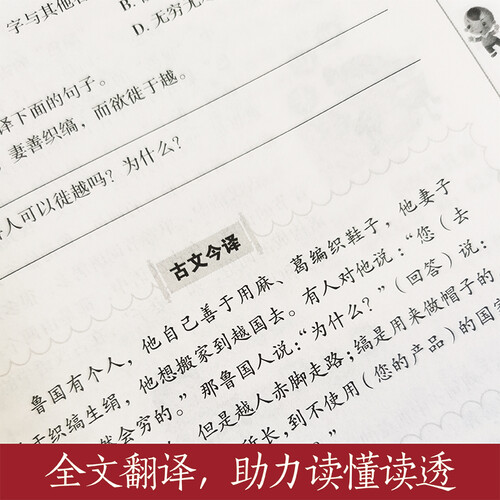 字与其他
B.
D. 无穷无
译下面的句子。
妻善织缟，而欲徙于越。
人可以徙越吗？为什么？
古文今译
鲁国有个人，他自己善于用麻、葛编织鞋子，他妻子
于织缟生绢，他想搬家到越国去。有人对他说：“您（去
然会穷的。”那鲁国人说：“为什么？”（回答）说：
但是越人赤脚走路；缟是用来做帽子的
所长，到不使用（您的产品）的国
全文翻译，助力读懂读透